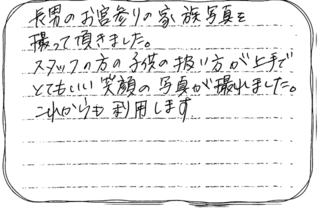 長男のお宮参りの家族写真を
撮って頂きました。
スタッフの方の子供の扱い方が上手で
とてもいい笑顔の写真が撮れました。
これからも利用します